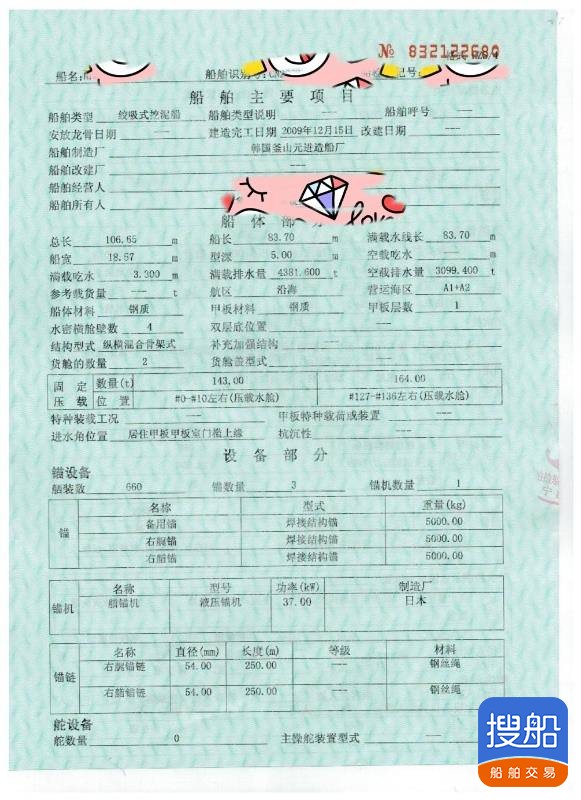 № 832122680
船名:
船舶识别号:CN
记号:
船舶主要项目
船舶类型 绞吸式挖泥船 船舶类型说明 --- 船舶呼号 ---
安放龙骨日期 --- 建造完工日期 2009年12月15日 改建日期 ---
船舶制造厂 韩国釜山元进造船厂
船舶改建厂 ---
船舶经营人
船舶所有人
船体部分
总长 106.65 m 船长 83.70 m 满载水线长 83.70 m
船宽 18.67 m 型深 5.00 m 空载吃水 --- m
满载吃水 3.300 m 满载排水量 4381.600 t 空载排水量 3099.400 t
参考载货量 --- t 航区 沿海 营运海区 A1+A2
船体材料 钢质 甲板材料 钢质 甲板层数 1
水密横舱壁数 4 双层底位置 ---
结构型式 纵横混合骨架式 补充加强结构 ---
货舱的数量 2 货舱盖型式 ---
固定 数量(t) 143.00 164.00
压载 位置 #0-#10左右(压载水舱) #127-#136左右(压载水舱)
特种装载工况 --- 甲板特种载荷或装置 ---
进水角位置 居住甲板甲板室门槛上缘 抗沉性 ---
设备部分
锚设备
舾装数 660 锚数量 3 锚机数量 1
锚 名称 型式 重量(kg)
备用锚 焊接结构锚 5000.00
右艉锚 焊接结构锚 5000.00
右艏锚 焊接结构锚 5000.00
锚机 名称 型号 功率(kW) 制造厂
艏锚机 液压锚机 37.00 日本
锚链 名称 直径(mm) 长度(m) 等级 材料
右艉锚链 54.00 250.00 --- 钢丝绳
右艏锚链 54.00 250.00 --- 钢丝绳
舵设备
舵数量 0 主操舵装置型式 ---
搜船
船舶交易